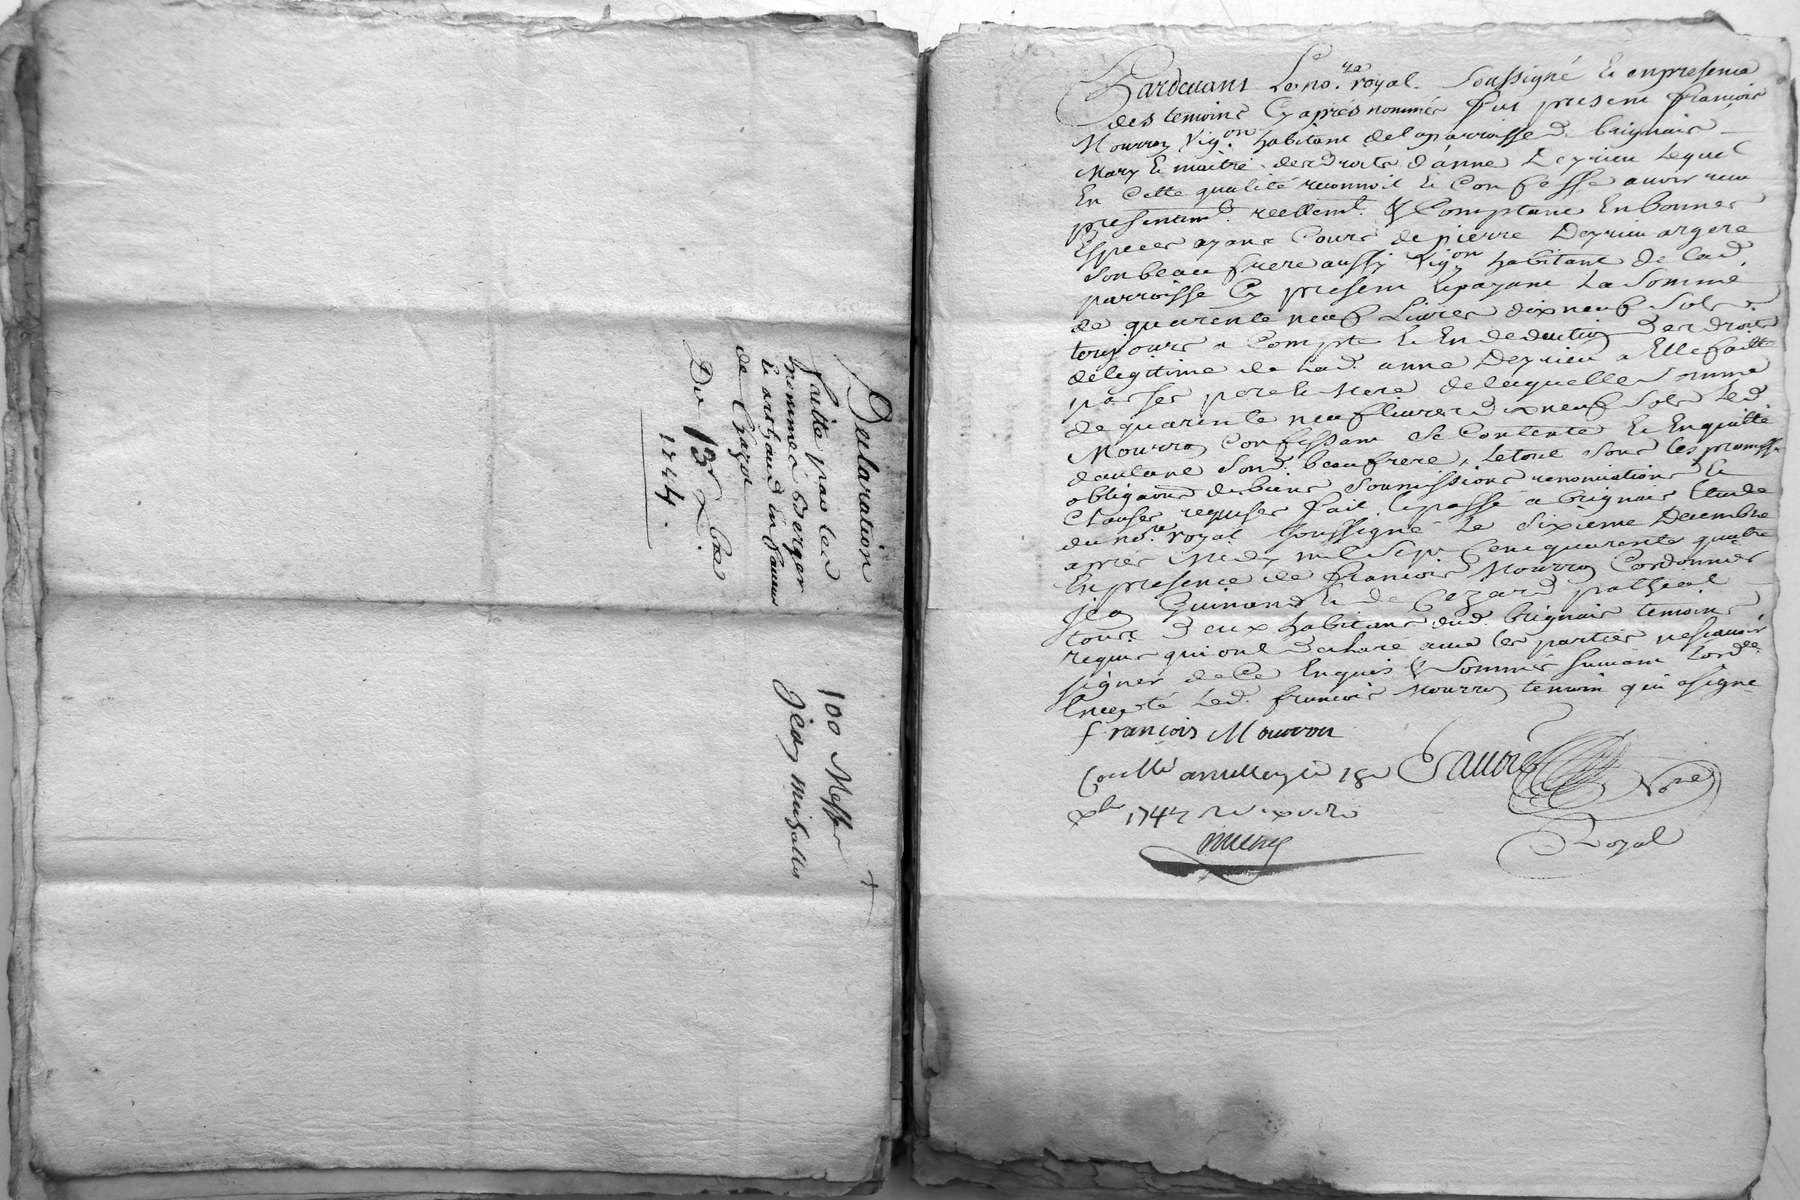 Declaration
faitte par les
nommés Berger
& archaud
de Chazot
Du 13e Xbre
1744.
100 Messr
Jean
Pardevant Le no.re royal Soussigné & en presence
des temoins Cy après nommés fut present françois
Mourron Vig.on habitant de la parroisse de brignais
Mary & maitre des droits d'anne Deyrieu Lequel
En Cette qualité reconnoit & Confesse avoir reçu
presentem.t reellem.t & Comptant En bonnes
Especes ayant Cours de pierre Deyrieu
Son beau frere aussy Vig.on habitant de lad.
parroisse Cy present & payant La Somme
de quarente neuf Livres dix neuf Sols
toujours a Compte & En deduction des droits
de legitime de Lad. anne Deyrieu a Elle faitte
par Ses pere & Mere de laquelle Somme
de quarente neuf livres dix neuf Sols Led.
Mourron Confessant Se Contente & En quitte
d'autant Sond. beaufrere, Le tout Sous les promess.
obligaons de biens Soumissions renonciations &
Clauses requises fait & passé a brignais Etude
du no.re royal Soussigné Le Sixieme Decembre
après Midy mil Sept Cent quarente quatre
En presence de francois Mourron Cordonnier
Jean Guinand & de Cezard
tous deux habitans dud. brignais temoins
requis qui ont declaré avec les parties ne scavoir
Signer de Ce Enquis & Sommés Suivant Lord.ce
Excepté Led. françois Mourron temoin qui a signé
françois Mourron
Conllé a 18e
Xbre 1744 Re
Nore
Royal